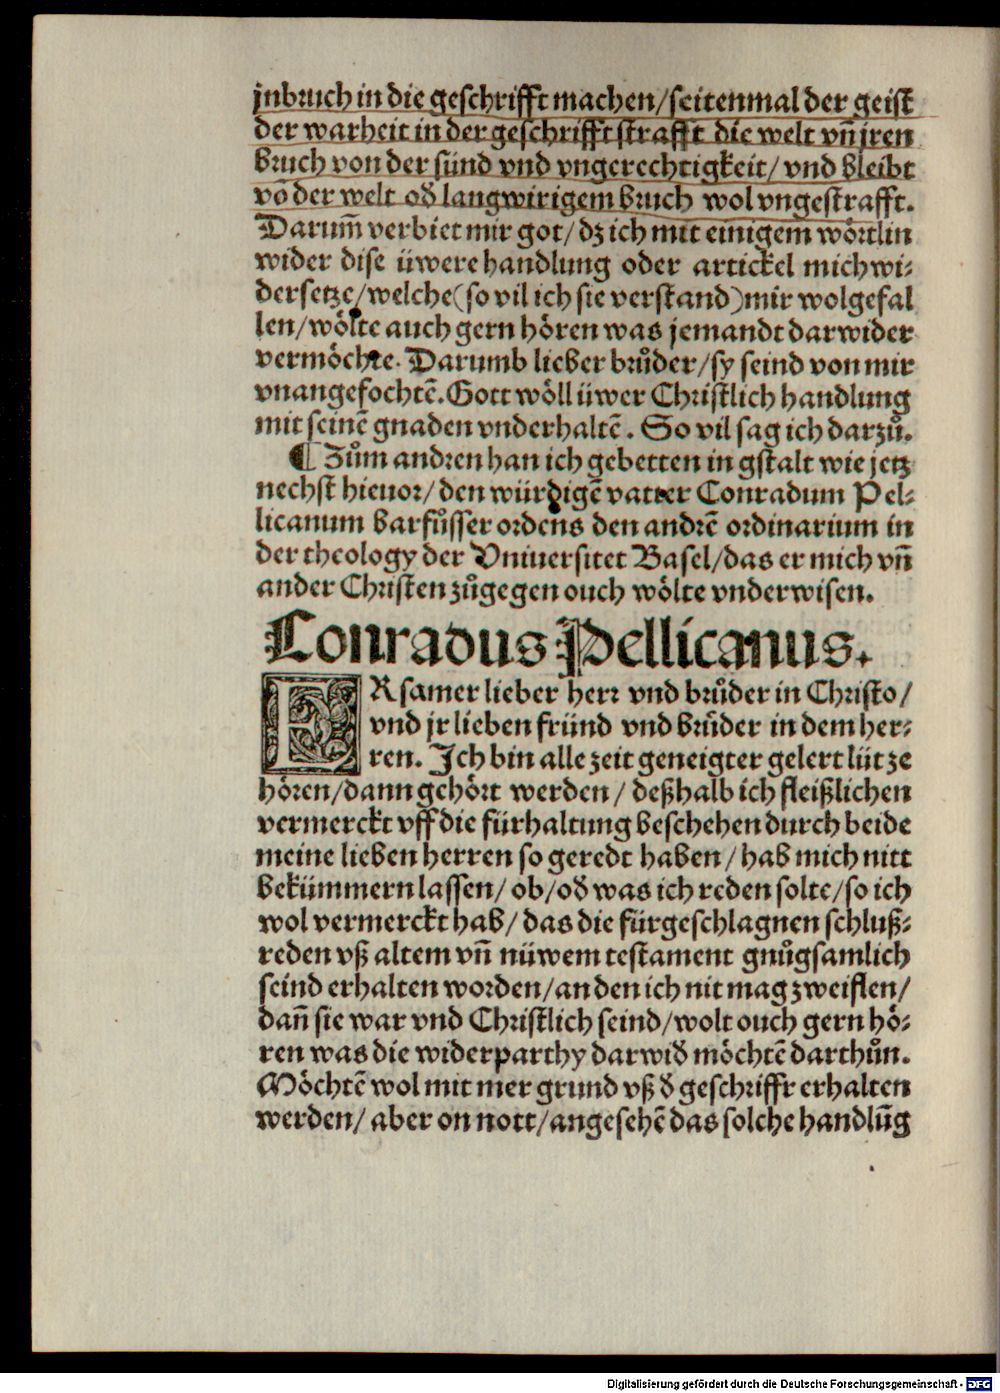 jnbruch in die geschrifft machen/seitenmal der geist
der warheit in der geschrifft strafft die welt vñ jren
bruch von der sünd vnd vngerechtigkeit/ vnd bleibt
võ der welt oď langwirigem bruch wol vngestrafft.
Darum̄ verbiet mir got/ dz ich mit einigem wörtlin
wider dise üwere handlung oder artickel mich wi⸗
dersetze/welche(so vil ich sie verstand)mir wolgefal
len/wölte auch gern hören was jemandt darwider
vermöchte. Darumb lieber brůder/sy seind von mir
vnangefochtē. Gott wöll üwer Christlich handlung
mit seinē gnaden vnderhaltē. So vil sag ich darzů.
¶ Zům andren han ich gebetten in gstalt wie jetz
nechst hieuor/ den würdigē vatter Conradum Pel⸗
licanum barfůsser ordens den andrē ordinarium in
der theology der Vniuersitet Basel/das er mich vñ
ander Christen zůgegen ouch wölte vnderwisen.
Conradus Pellicanus.
ERsamer lieber herr vnd brůder in Christo/
vnd jr lieben fründ vnd brůder in dem her⸗
ren. Ich bin alle zeit geneigter gelert lüt ze
hören/dann gehört werden/ deßhalb ich fleißlichen
vermerckt vff die fürhaltung beschehen durch beide
meine lieben herren so geredt haben/ hab mich nitt
bekümmern lassen/ ob/oď was ich reden solte/so ich
wol vermerckt hab/ das die fürgeschlagnen schluß⸗
reden vß altem vñ nüwem testament gnůgsamlich
seind erhalten worden/an den ich nit mag zweiflen/
dañ sie war vnd Christlich seind/wolt ouch gern hö⸗
ren was die widerparthy darwiď möchtē darthůn.
Möchtē wol mit mer grund vß ď geschrifft erhalten
werden/ aber on nott/angesehē das solche handlūg
Digitalisierung gefördert durch die Deutsche Forschungsgemeinschaft - DFG